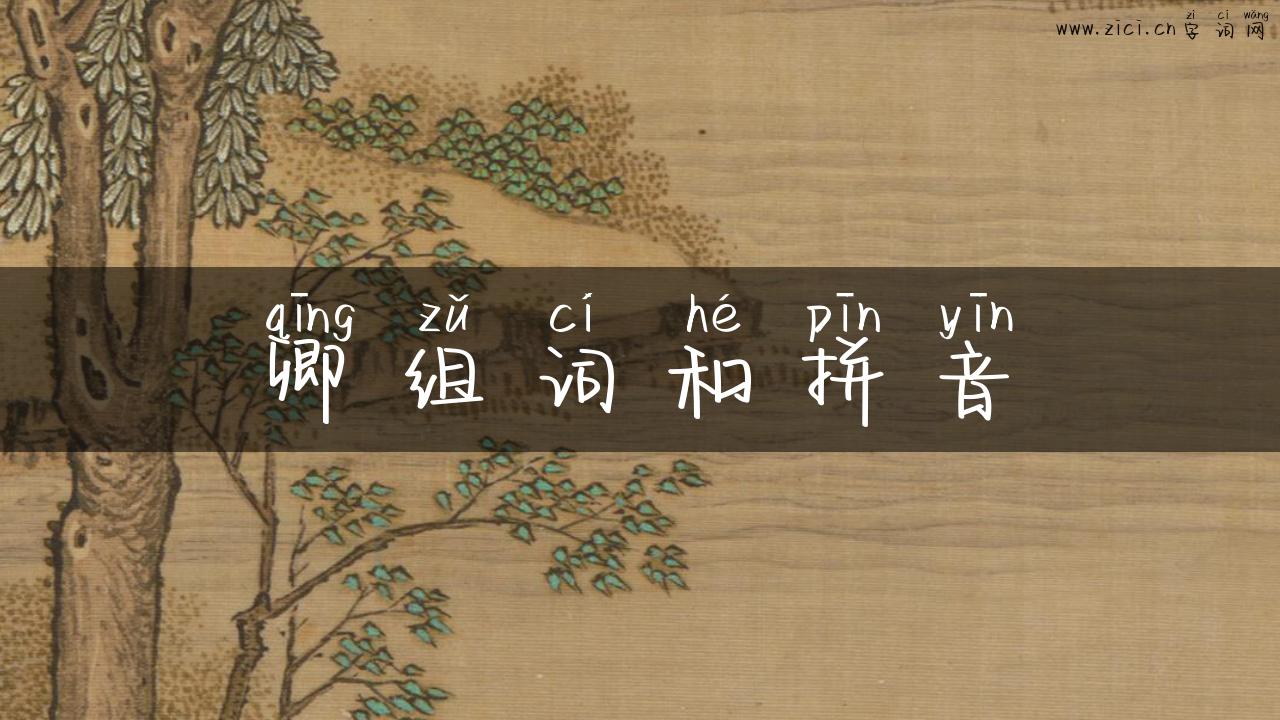 zì cí wǎng
www.zici.cn 字词网
qīng zǔ cí hé pīn yīn
卿组词和拼音